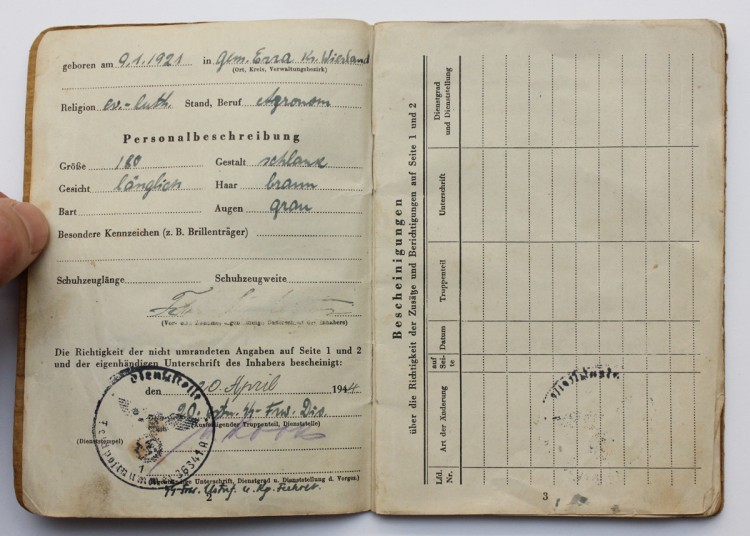 geboren am 9.1.1921 in Gem. Erra Kr. Wierland
(Ort, Kreis, Verwaltungsbezirk)
Religion ev.-luth. Stand, Beruf Agronom
Personalbeschreibung
Größe 180 Gestalt schlank
Gesicht länglich Haar braun
Bart Augen grau
Besondere Kennzeichen (z. B. Brillenträger)
Schuhzeuglänge Schuhzeugweite
(Vor- und Zuname, eigenhändige Unterschrift des Inhabers)
Die Richtigkeit der nicht umrandeten Angaben auf Seite 1 und 2
und der eigenhändigen Unterschrift des Inhabers bescheinigt:
den 20. April 1944
20. estn. SS-Frw. Div.
(Ausfertigender Truppenteil, Dienststelle)
(Dienststempel)
(Eigenhändige Unterschrift, Dienstgrad u. Dienststelle d. Vorges.)
2
Dienststelle
Feldpostnummer
Bescheinigungen
über die Richtigkeit der Zusätze und Berichtigungen auf Seite 1 und 2
Lfd. Nr.
Art der Änderung
auf Seite
Datum
Truppenteil
Unterschrift
Dienstgrad und Dienststellung
3